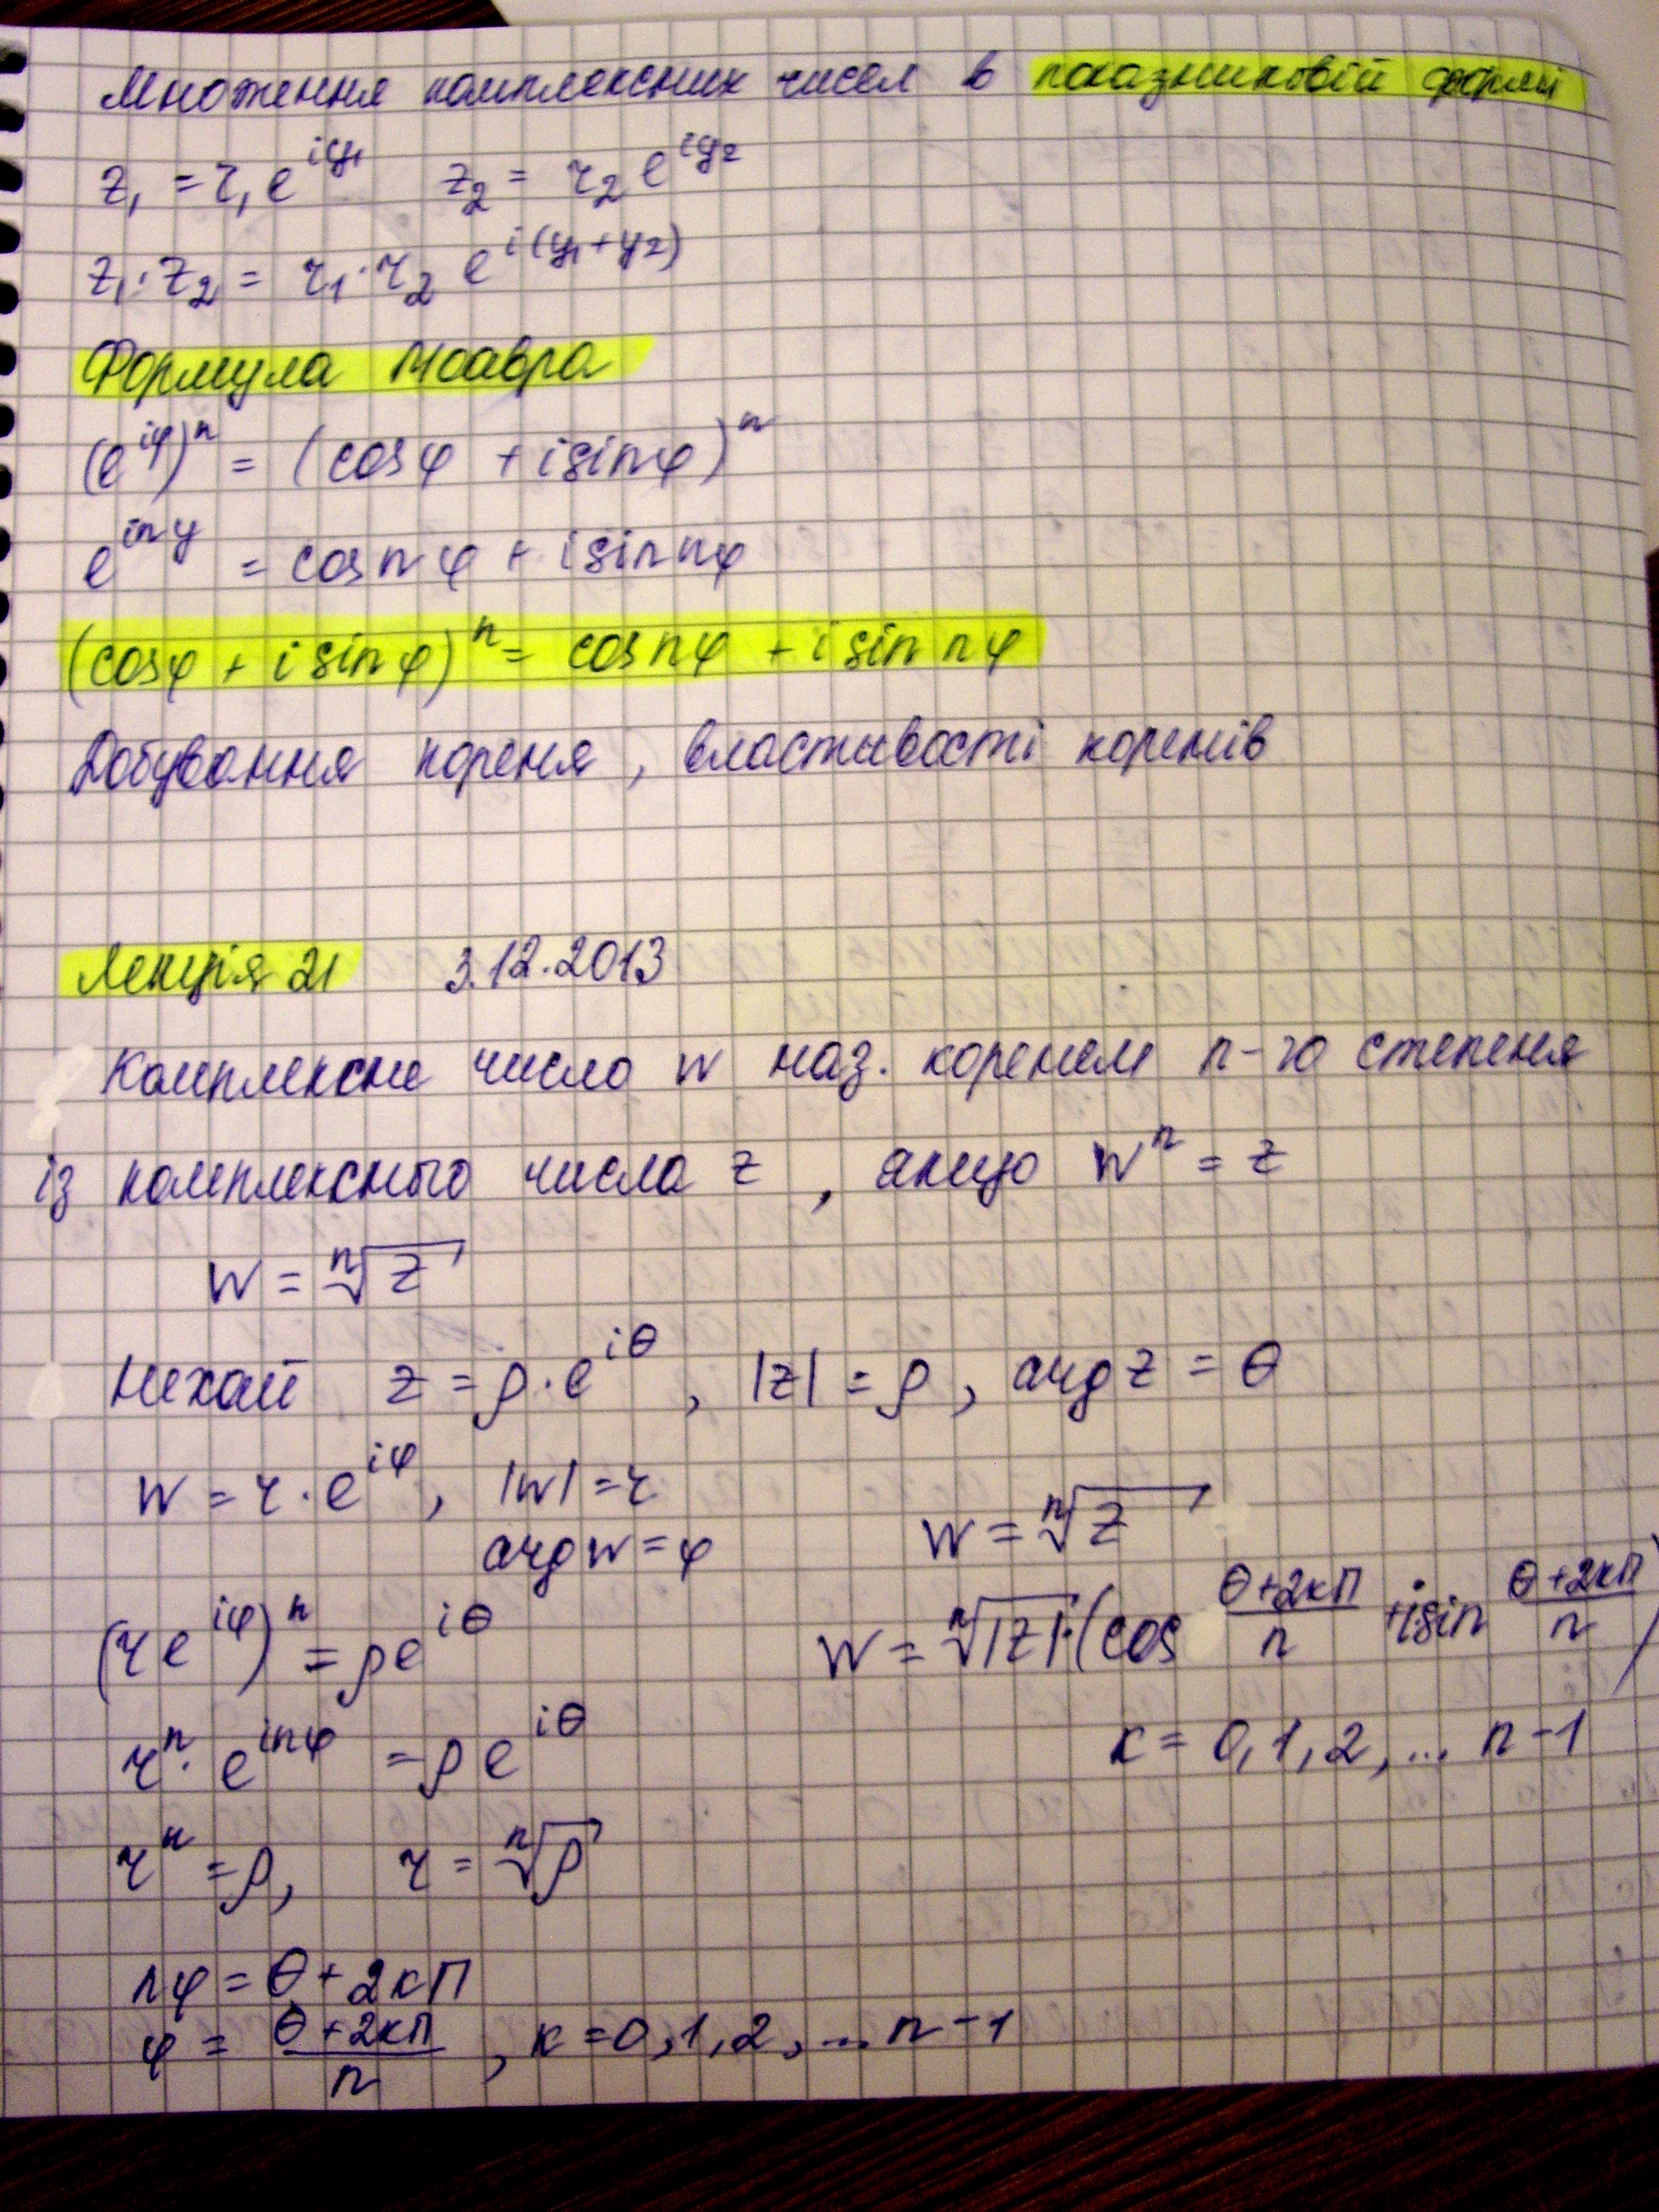 Множення комплексних чисел в показниковій формі
z₁ = r₁ e^{iφ₁} z₂ = r₂ e^{iφ₂}
z₁·z₂ = r₁·r₂ e^{i(φ₁+φ₂)}
Формула Моавра
(e^{iφ})^n = (cosφ + i sinφ)^n
e^{inφ} = cos nφ + i sin nφ
(cosφ + i sinφ)^n = cos nφ + i sin nφ
Добування кореня, властивості коренів
Лекція 21 3.12.2013
Комплексне число w наз. коренем n-го степеня
із комплексного числа z, якщо w^n = z
w = ⁿ√z
Нехай z = ρ·e^{iθ}, |z| = ρ, arg z = θ
w = r·e^{iφ}, |w| = r
arg w = φ
w = ⁿ√z
(re^{iφ})^n = ρe^{iθ}
w = ⁿ√|z|·(cos (θ+2кП)/n + i sin (θ+2кП)/n)
r^n · e^{inφ} = ρe^{iθ}
к = 0,1,2,... n-1
r^n = ρ, r = ⁿ√ρ
nφ = θ + 2кП
φ = (θ+2кП)/n, к = 0,1,2,... n-1